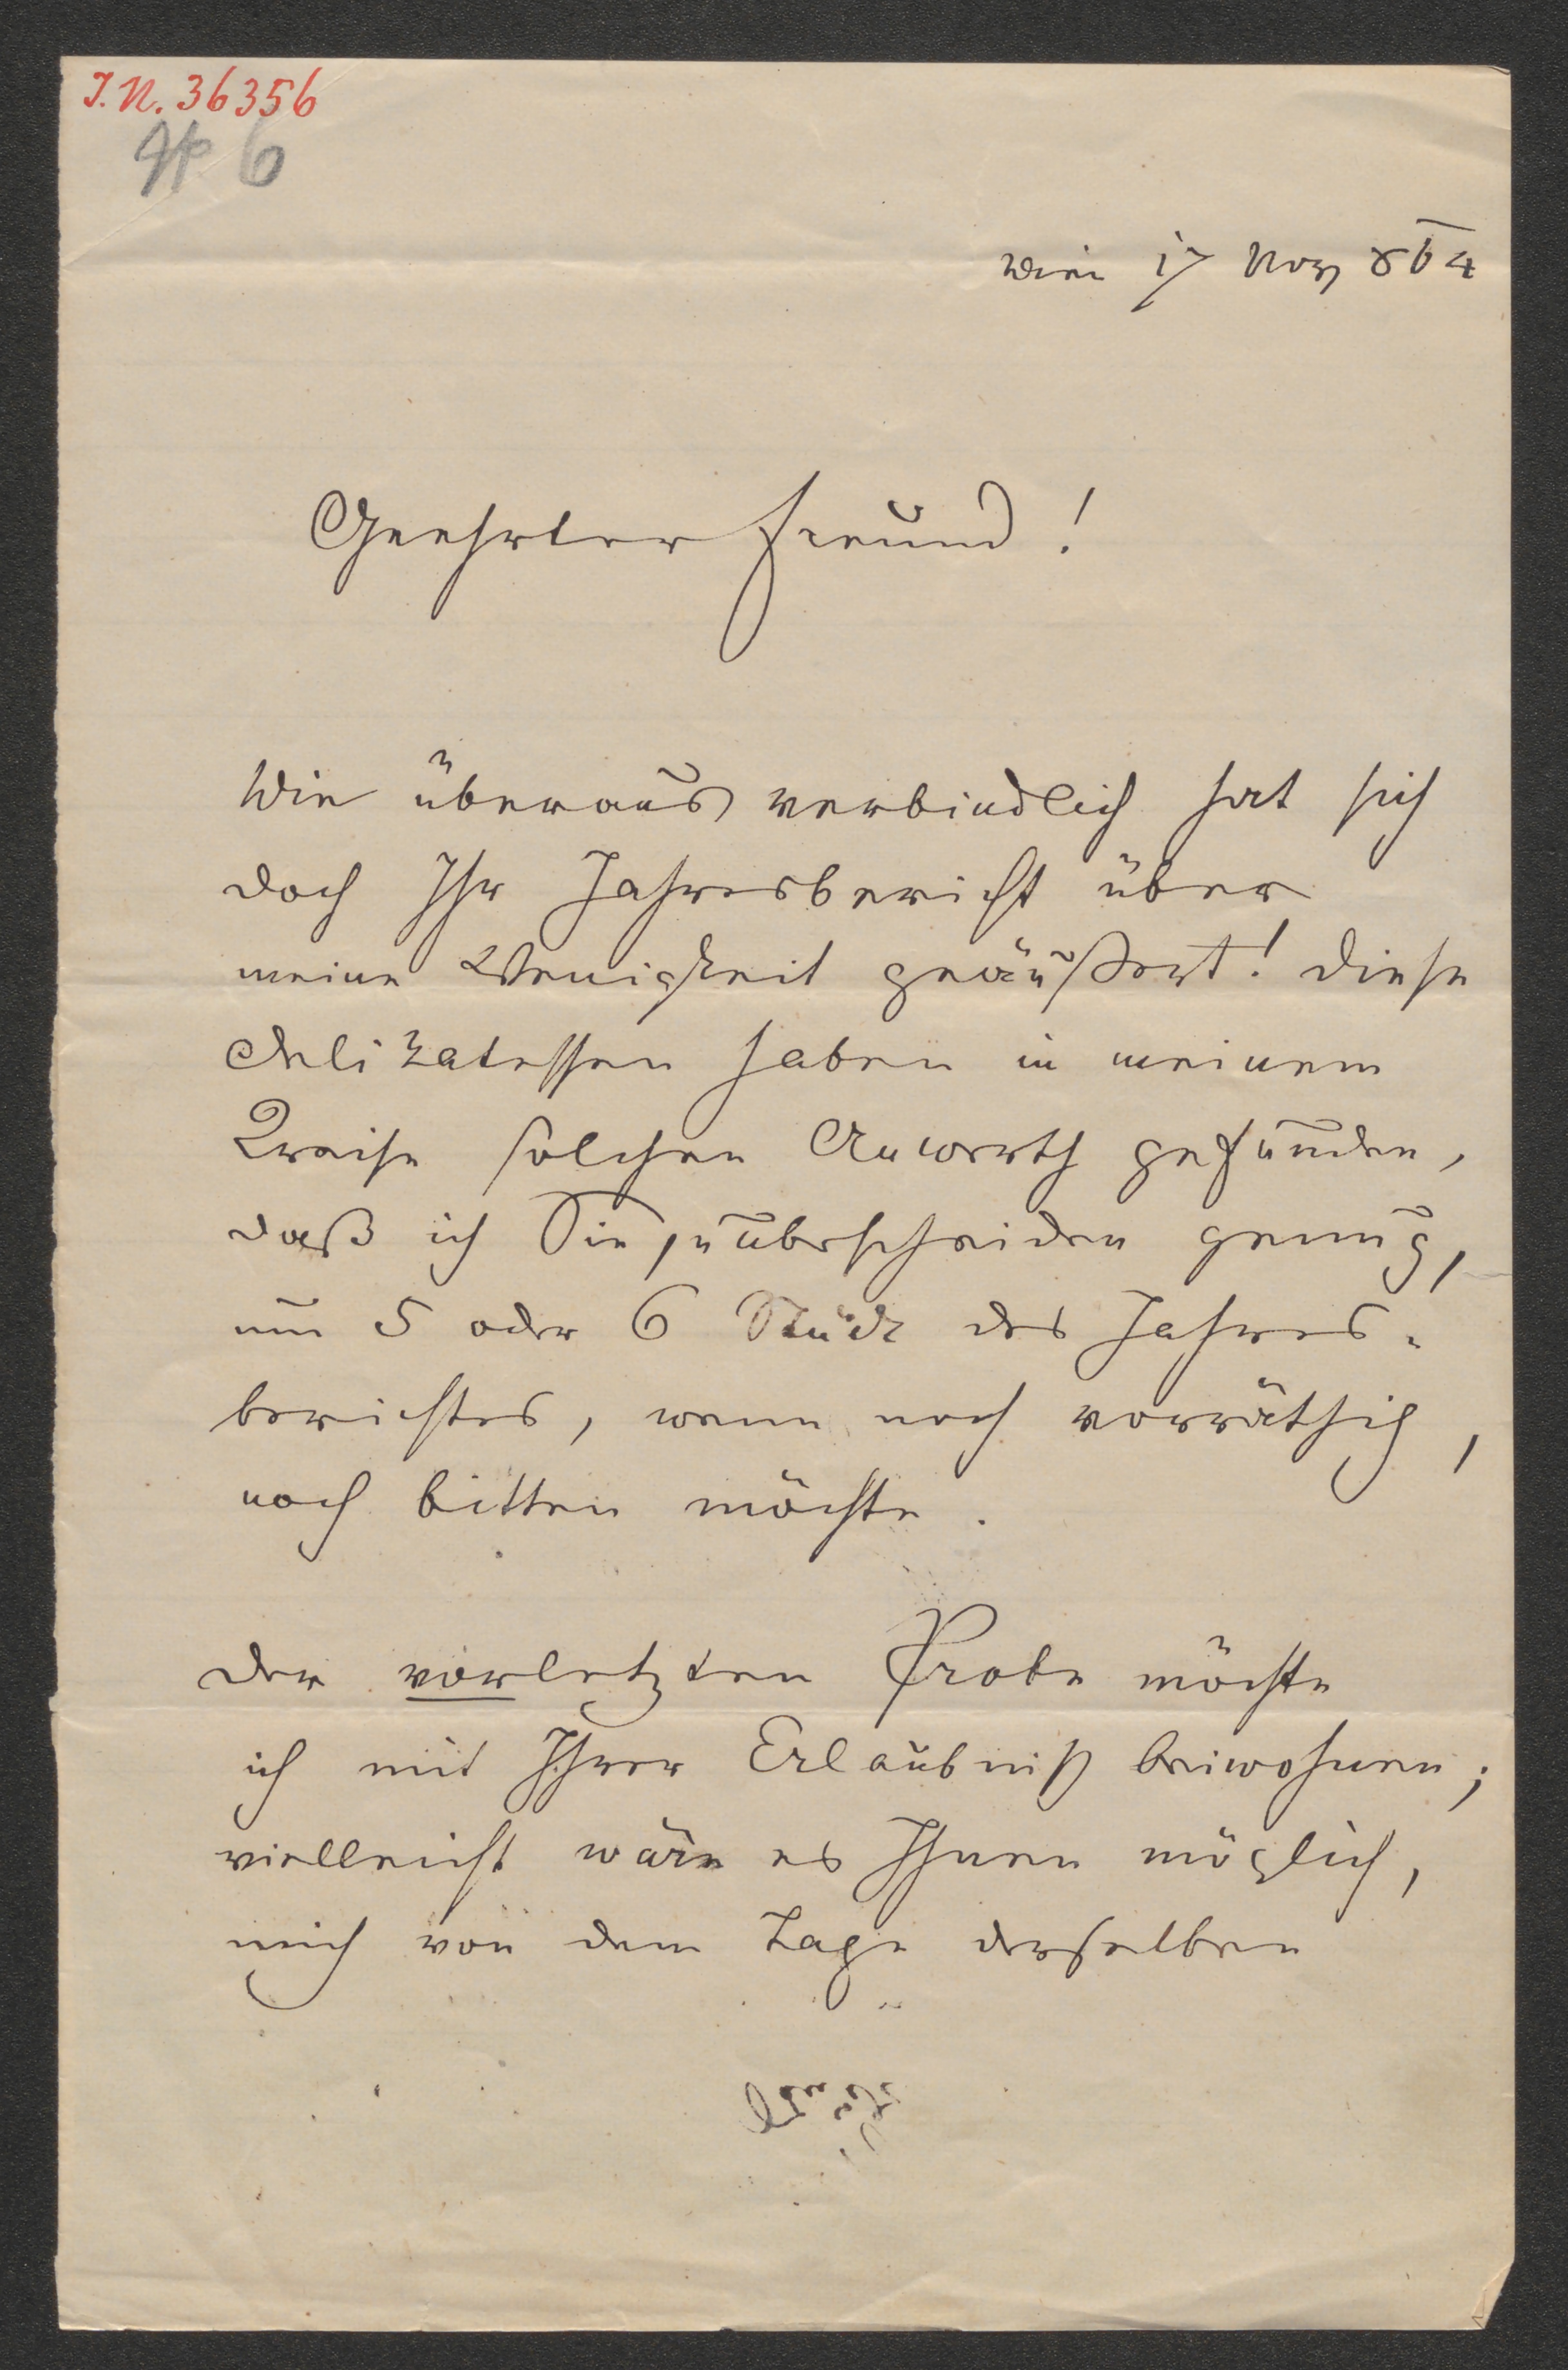 I.N. 36356
№ 6
Wien 17 Nov 864
Geehrter Freund!
Wie überaus verbindlich hat sich
doch Ihr Jahresbericht über
meine Wenigkeit geäußert! Diese
Delikatessen haben in meinem
Kreise solchen Anwerth gefunden,
daß ich Sie, unbescheiden genug,
um 5 oder 6 Stück des Jahres-
berichtes, wenn noch vorräthig,
noch bitten möchte.
Der vorletzten Probe möchte
ich mit Ihrer Erlaubniß beiwohnen;
vielleicht wäre es Ihnen möglich,
mich von dem Tage derselben